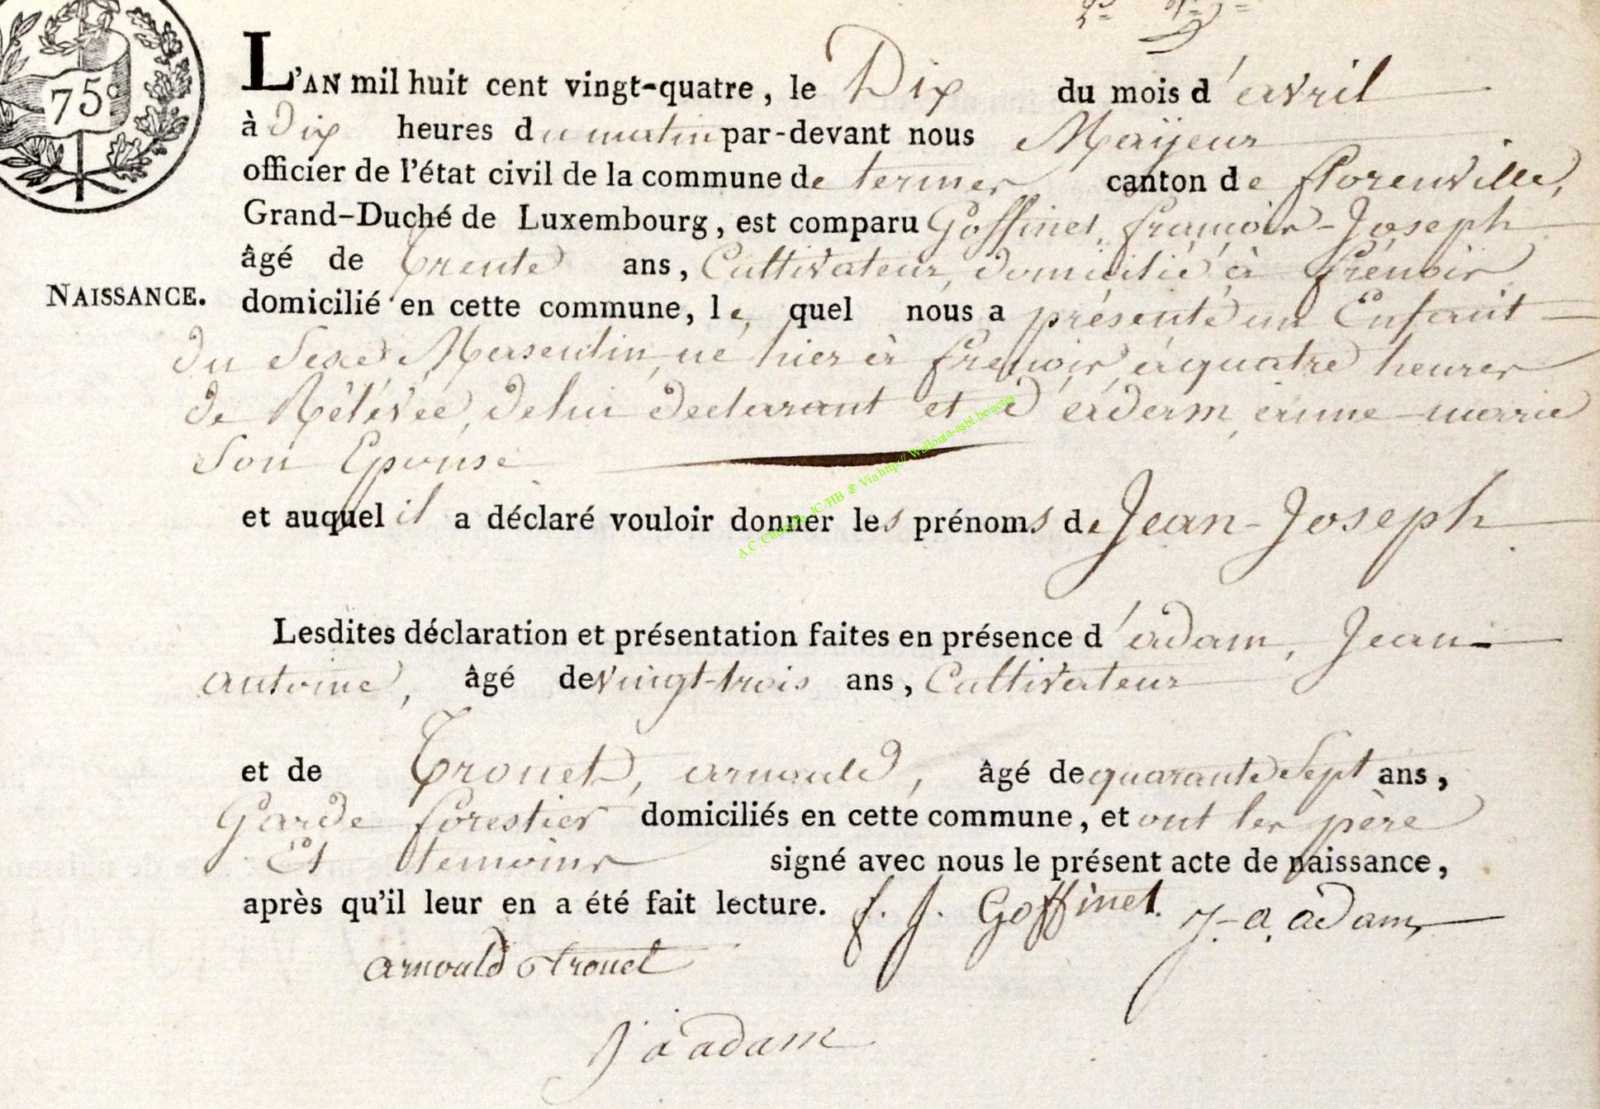 75c
L'AN mil huit cent vingt-quatre, le Dix du mois d'avril
à Dix heures du matin par-devant nous Maÿeur
officier de l'état civil de la commune de termes canton de florenville,
Grand-Duché de Luxembourg, est comparu Goffinet, françois-Joseph
âgé de trente ans, Cultivateur, domicilié à frénois
NAISSANCE. domicilié en cette commune, le quel nous a présenté un Enfant
du Sexe Masculin, né hier à frénois, à quatre heures
de Rélévée, de lui declarant et d'adam, anne-marie
Son Epouse
et auquel il a déclaré vouloir donner les prénoms de Jean-Joseph
Lesdites déclaration et présentation faites en présence d'adam, Jean-
antoine, âgé de vingt-trois ans, Cultivateur
et de Trouet, arnould, âgé de quarante Sept ans,
Garde forestier domiciliés en cette commune, et ont les père
Et temoins signé avec nous le présent acte de naissance,
après qu'il leur en a été fait lecture. f. J. Goffinet. J-a. adam
arnould trouet
J a adam